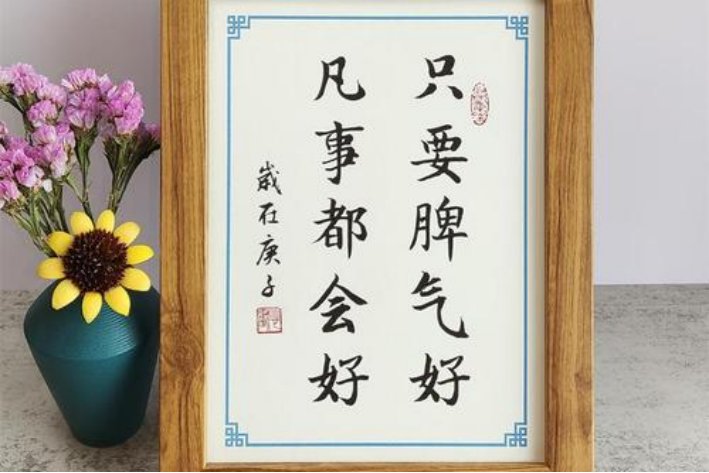 只要脾气好
凡事都会好
歲在庚子